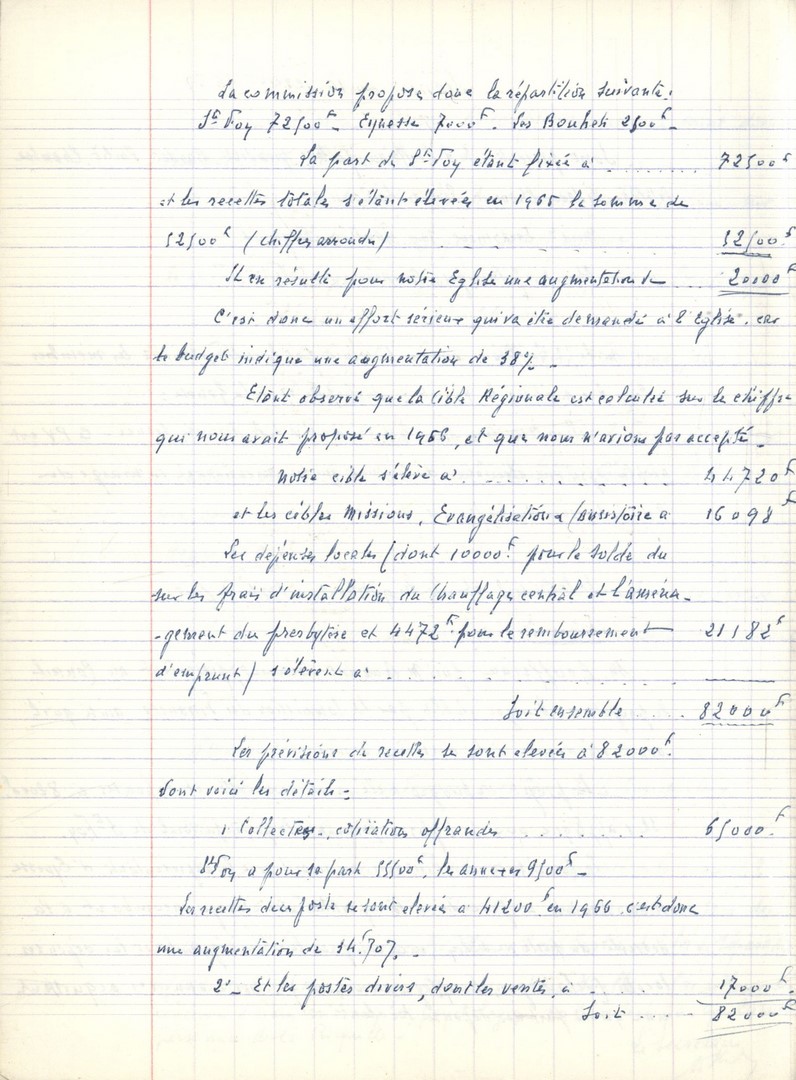 La commission propose donc la répartition suivante :
Ste Foy 72500F - Eynesse 7000F. Les Bouhets 2500F -
La part de Ste Foy étant fixée à ....... 72500F
et les recettes totales s'étant élevées en 1966 la somme de
52500F (chiffres arrondis) ....... 52500F
Il en résulte pour notre Eglise une augmentation de ... 20000F
C'est donc un effort sérieux qui va être demandé à l'Eglise, car
le budget indique une augmentation de 38% -
Etant observé que la cible Régionale est calculée sur le chiffre
qui nous avait proposé en 1966, et que nous n'avions pas accepté -
Notre cible s'élève à ......... 44720F
et les cibles Missions, Evangélisation Consistoire à 16098F
Les dépenses locales (dont 10000F pour le solde du
sur les frais d'installation du Chauffage central et l'aména-
-gement du presbytère et 4472F pour le remboursement 21182F
d'emprunt) s'élèvent à .........
Soit ensemble .... 82000F
Les prévisions de recettes se sont élevées à 82000F.
Dont voici les détails =
1 Collectes, cotisations offrandes ....... 65000F
Ste Foy a pour sa part 55500F, les annexes 9500F -
Les recettes de ce poste se sont élevées à 41200F en 1966 c'est donc
une augmentation de 34,70%.
2° - Et les postes divers, dont les ventes, à .... 17000F.
Soit .... 82000F